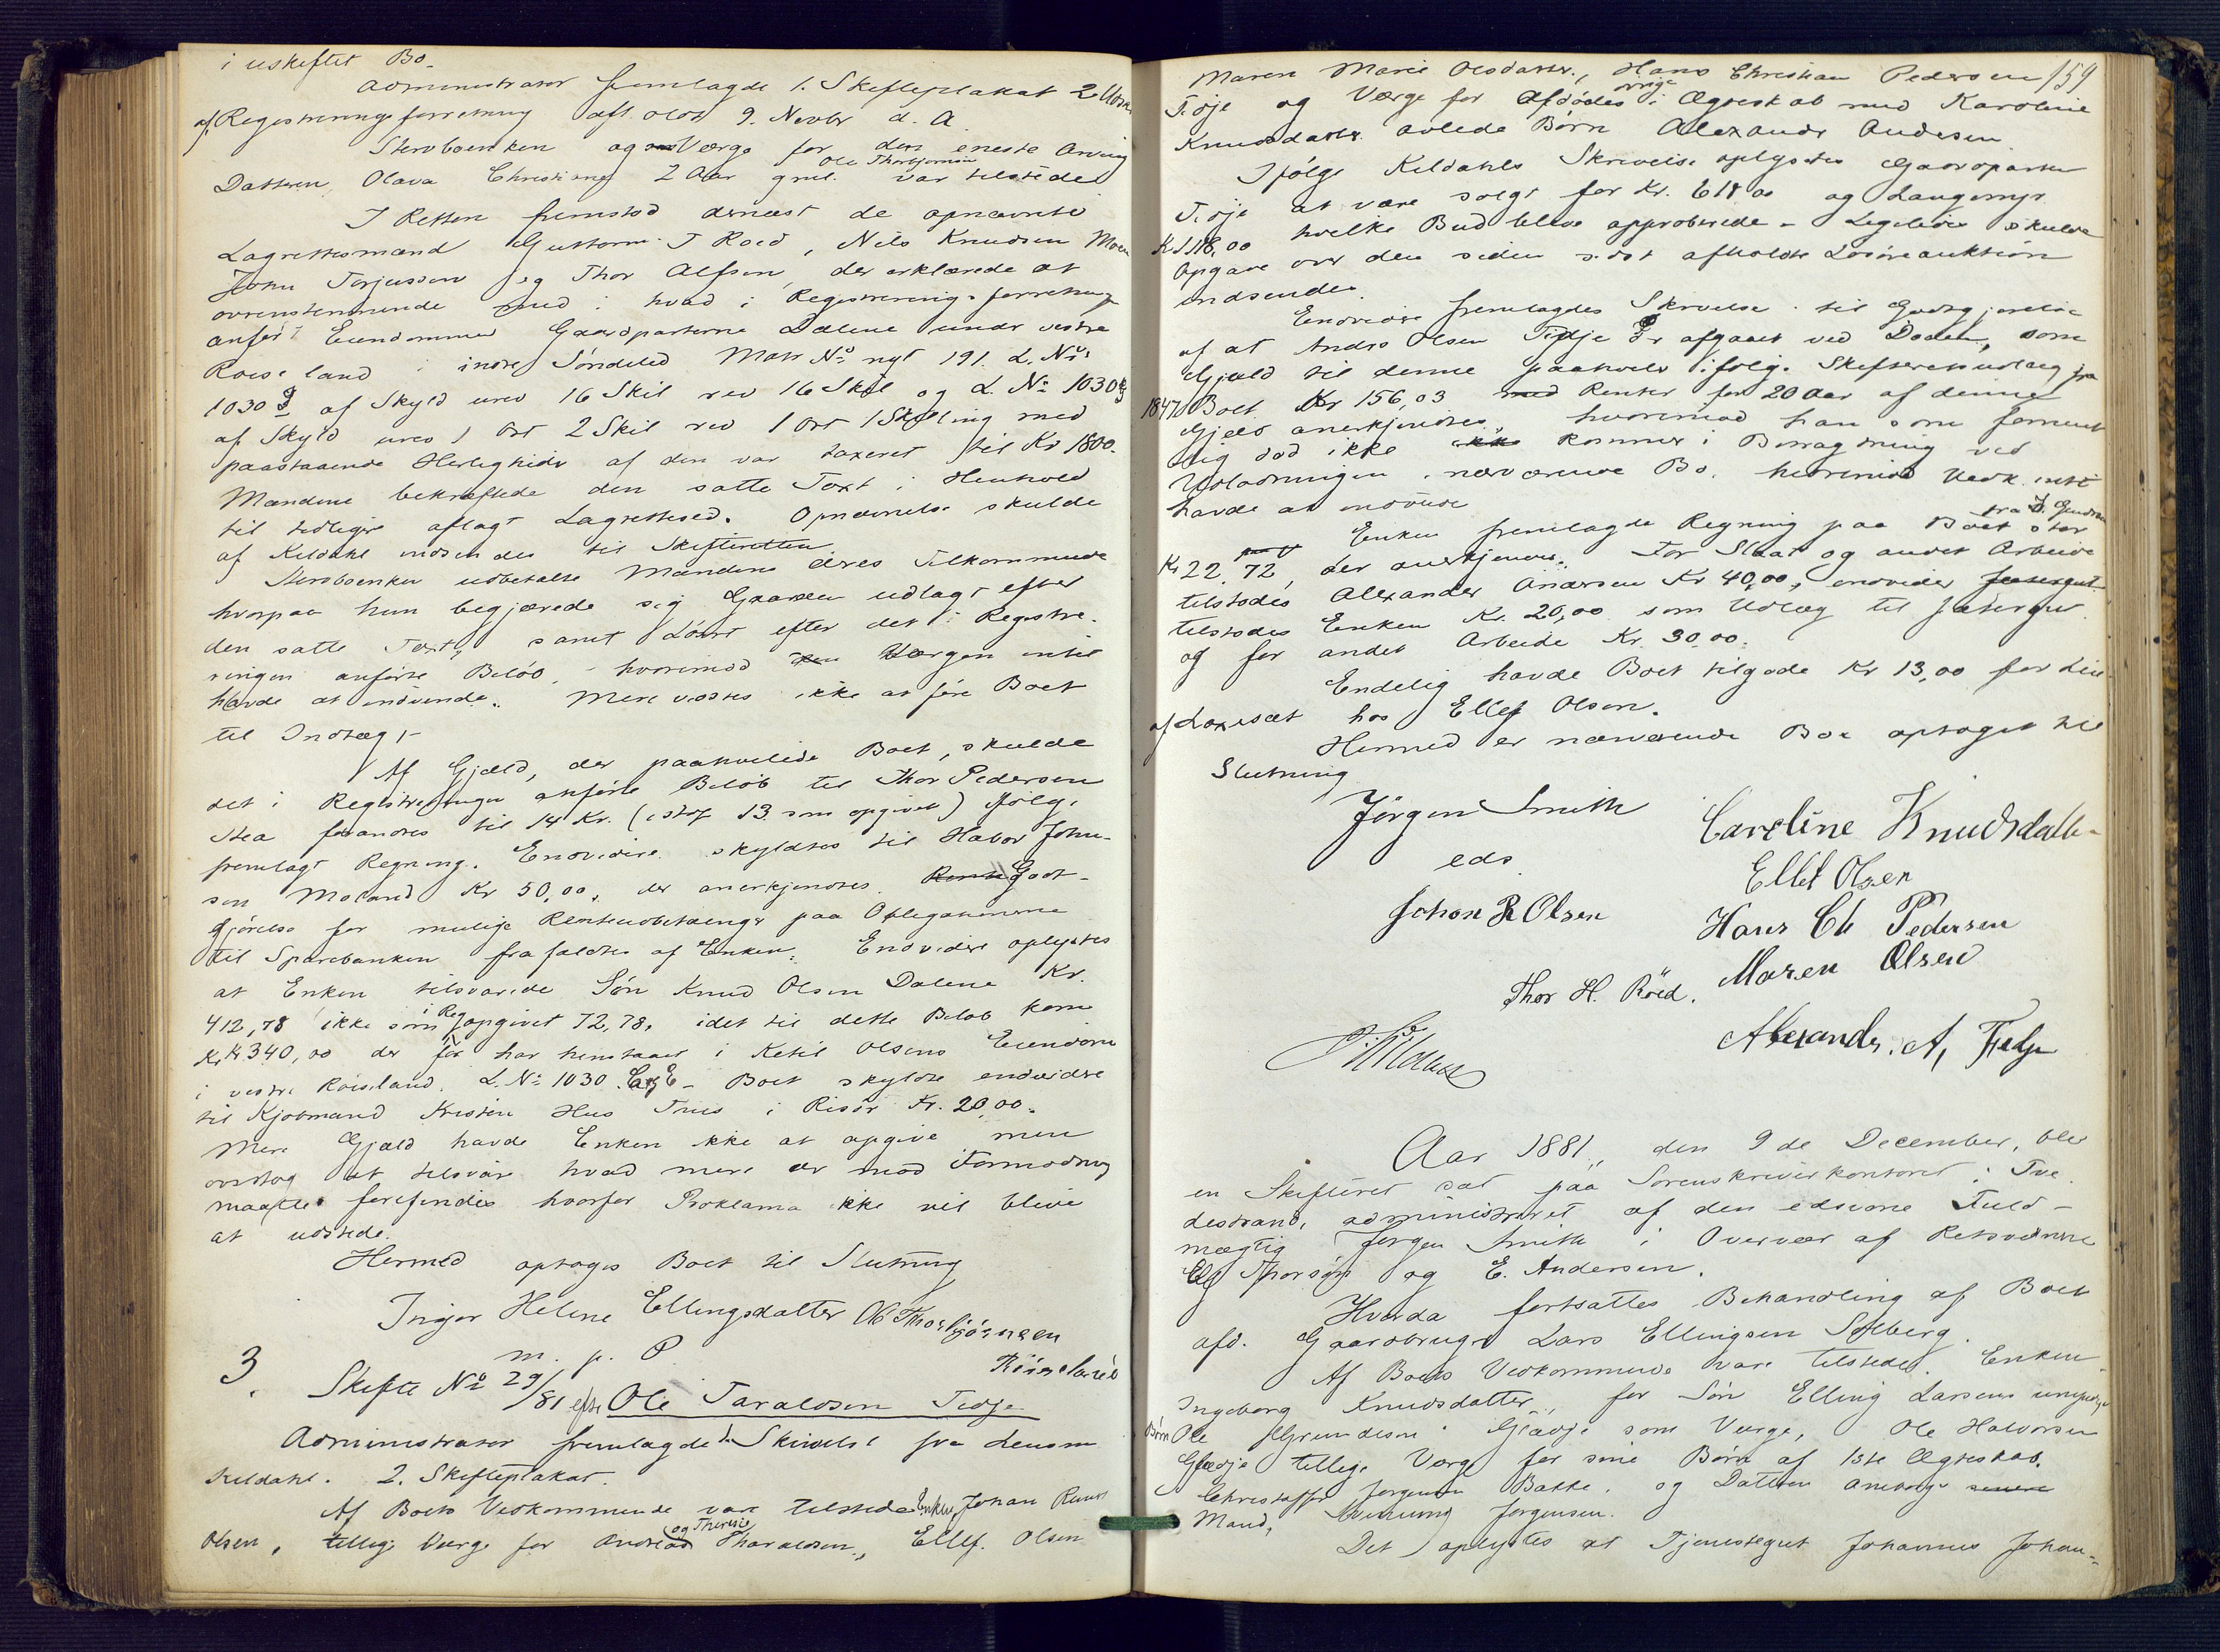 i uskiftet Bo.
Administrator fremlagde 1. Skifteplakat 2. Udskr
af Registreringsforretning afh. den 9. Novbr d. A.
Sterboenken og Værge for den eneste Arving
Ole Thorbjørnsen
Datteren Olava Christiane 2 Aar gml. var tilstede
I Retten fremstod dernæst de opnævnte
Lagrettesmænd Guttorm T Roed, Nils Knudsen Moen
John Terjussen og Thor Alfsen, der erklærede at
overenstemmende med hvad i Registreringsforretning
anført Eiendommen Gaardparterne Dalene under vestre
Roiseland i indre Søndeled Matr No nyt 191. L. No
1030 af Skyld urev 16 Skil rev 16 Skil og L. No 1030
af Skyld urev 1 Ort 2 Skil rev 1 Ort 1 Skilling med
paastaaende Herligheder af dem var taxeret til Kr 1800.
Mændene bekræftede den satte Taxt i Henhold
til tidligere aflagt Lagrettesed. Opnævnelse skulde
af Keldahl indsendes til Skifteretten.
Sterboenken udbetalte Mændene deres Tilkommende
hvorpaa hun begjærede sig Gaarden udlagt efter
den satte Taxt, samt Løsøret efter det i Registre-
ringen anførte Beløb, hvorimod Værgen intet
havde at indvende. Mere vidstes ikke at føre Boet
til Indtægt
Af Gjæld, der paahvilede Boet, skulde
det i Registreringen anførte Beløb til Thor Pedersen
Stea forandres til 14 Kr. (istdf 13 som opgivet) ifølge
fremlagt Regning. Endvidere skyldtes til Halvor John-
sen Moland Kr 50,00, der anerkjendtes. Godt-
gjørelse for mulige Renteudbetalinger paa Obligationerne
til Sparebanken frafaldtes af Enken. Endvidere oplystes
at Enken tilsvarede Søn Knud Olsen Dalene Kr.
412,78 ikke som i Reg opgivet 72,78, idet til dette Beløb kom
Kr 340,00 der før har henstaaet i Ketil Olsens Eiendom
i vestre Roiseland. L. No 1030 - Boet skyldte endvidre
til Kjøbmand Kristen Hus i Risør Kr. 20,00.
Mere Gjæld havde Enken ikke at opgive men
overtog at tilsvare hvad mere der mod Formodning
maatte forefindes hvorfor Proklama ikke vil blive
at udstede.
Hermed optoges Boet til Slutning
Inger Helene Ellingsdatter Ole Thorbjørnsen
m. p. P Röiseland
3. Skifte No 29/81 efter Ole Taraldsen Tedje
Administrator fremlagde 1. Skrivelse fra Lensm
Keldahl. 2. Skifteplakat.
Af Boets Vedkommende vare tilstede Enken, Johan
Olsen, tillige Værge for Andreas og Therese Tharaldsen, Ellef Olsen
159
Maren Marie Olsdatter, Hans Christian Pedersen
Tedje og Værge for Afdødes øvrige i Ægteskab med Karoline
Knudsdatter avlede Børn Alexander Andersen
Ifølge Keldahls Skrivelse oplystes Gaardparten
Tedje at være solgt for Kr. 618,00 og Langemyr
Kr 118,00 hvilke Bud bleve approberede. Ligeledes skulde
Opgave over den siden sidst afholdte Løsøreauktion
indsendes.
Endvidere fremlagdes Skrivelse til Godtgjørelse
af at Anders Olsen Tedje er afgaaet ved Døden, som
Gjæld til denne paahviler ifølge Skifteretsudlæg fra
1847 Boet Kr 156,03 med Renter for 20 Aar af denne
Gjæld anerkjendtes, hvorimod han som forment-
lig død ikke kommer i Betragtning ved
Udlodningen i nærværende Bo, herimod Vedk. intet
havde at indvende
Enken fremlagde Regning paa Boet stor
Kr 22,72, der anerkjendtes. For Slaat og andet Arbeide
tilstodes Alexander Andersen Kr 40,00, endvidere
tilstodes Enken Kr. 20,00 som Udlæg til
og for andet Arbeide Kr. 30,00.
Endelig havde Boet tilgode Kr 13,00 for Leie
af hos Ellef Olsen.
Hermed er nærværende Bo optaget til
Slutning
Jörgen Smith Caroline Knudsdatter
eds. Ellef Olsen
Johan R Olsen Hans Ch Pedersen
Thor H. Röed. Maren Olsen
Alexander. A, Tedje
Aar 1881, den 9de December, blev
en Skifteret sat paa Sorenskriverkontoret i Tve
destrand, administreret af den edsvorne Fuld-
mægtig Jørgen Smith i Overvær af Retsvidnerne
Thorsen og E. Andersen.
Hvorda fortsattes Behandling af Boet
afd. Gaardbruger Lars Ellingsen Solberg.
Af Boets Vedkommende vare tilstede. Enken
Ingeborg Knudsdatter, for Søn Elling Larsens umyndige
Børn Ole Grundesen Glødje som Værge, Ole Halvorsen
Glødje tillige Værge for sine Børn af 1ste Ægteskab,
Christoffer Jørgensen Bakke, og Datteren Aneborgs
Mand, Jørgensen.
Det oplystes at Tjenestegut Johannes Johan-